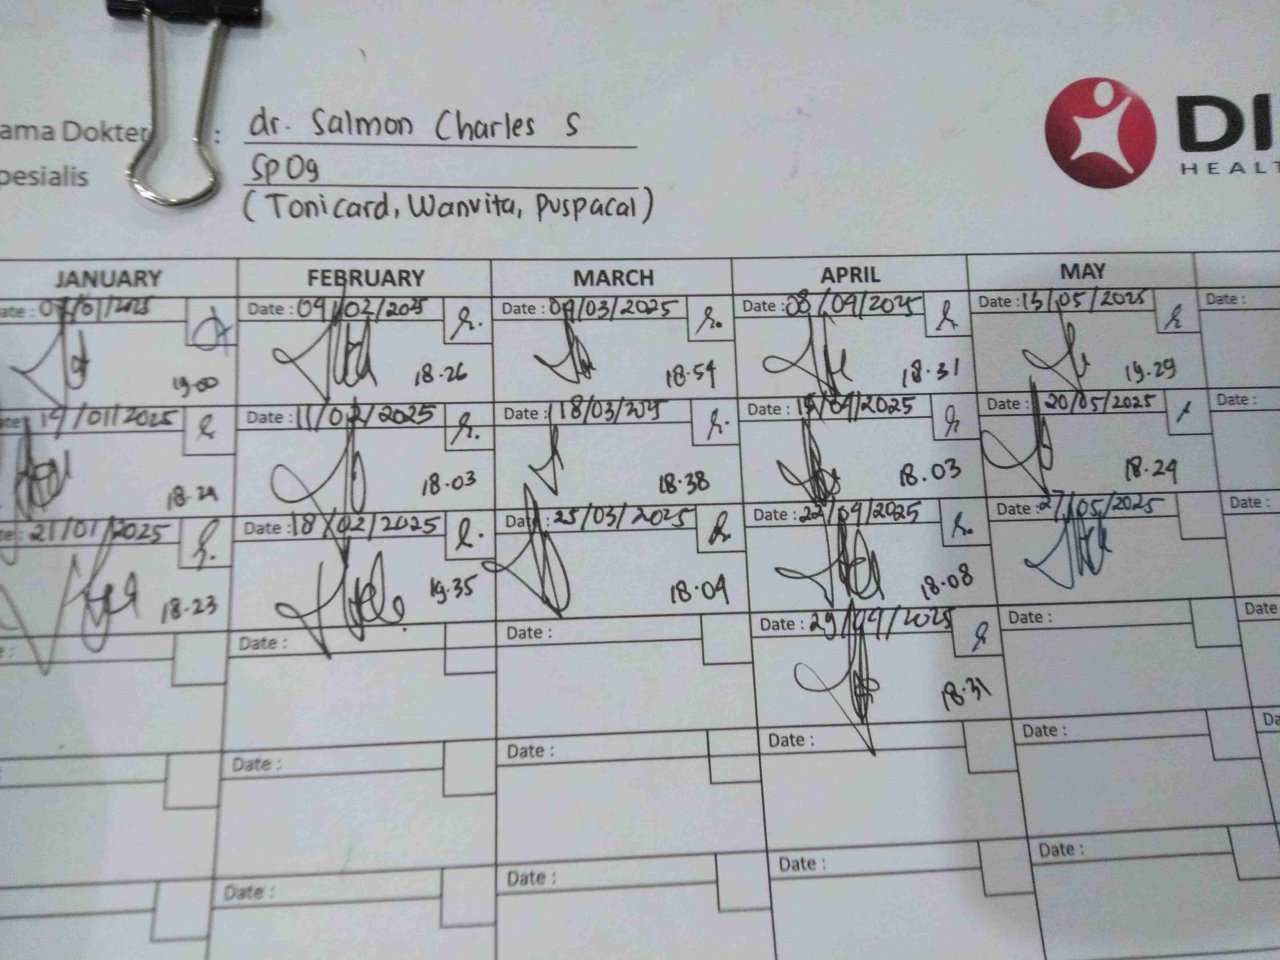 ama Dokter : dr. Salmon Charles S
pesialis SpOg
(Tonicard, Wanvita, Puspacal)
DI
HEALT
JANUARY FEBRUARY MARCH APRIL MAY
ate : 07/01/2025 Date : 04/02/2025 Date : 04/03/2025 Date : 08/04/2025 Date : 13/05/2025 Date :
19.00 18.26 18.54 18.31 19.29
ate 14/01/2025 Date : 11/02/2025 Date : 18/03/2025 Date : 15/04/2025 Date : 20/05/2025 Date :
18.24 18.03 18.38 18.03 18.24
te: 21/01/2025 Date : 18/02/2025 Date : 25/03/2025 Date : 22/04/2025 Date : 27/05/2025 Date :
18.23 19.35 18.04 18.08
e : Date : Date : Date : 29/04/2025 Date : Date
18.31
: Date : Date : Date : Date : Da
Date : Date : Date : Date :